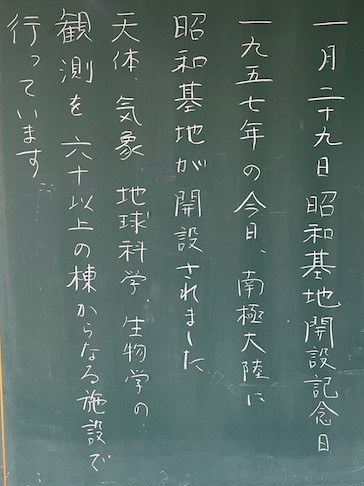 一月二十九日昭和基地開設記念日
一九五七年の今日、南極大陸に
昭和基地が開設されました
天体、気象、地球科学、生物学の
観測を六十以上の棟からなる施設で
行っています